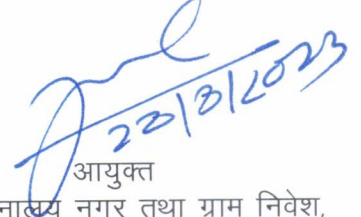 23/8/2023
आयुक्त
नालय नगर तथा ग्राम निवेश,